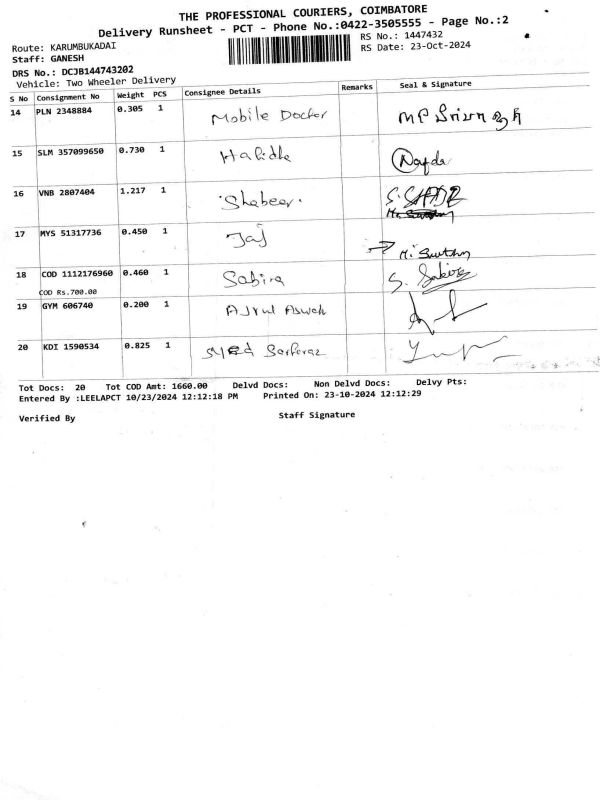 THE PROFESSIONAL COURIERS, COIMBATORE
Delivery Runsheet - PCT - Phone No.:0422-3505555 - Page No.:2
Route: KARUMBUKADAI
RS No.: 1447432
Staff: GANESH
RS Date: 23-Oct-2024
DRS No.: DCJB144743202
Vehicle: Two Wheeler Delivery
S No Consignment No Weight PCS Consignee Details Remarks Seal & Signature
14 PLN 2348884 0.305 1 Mobile Doctor
15 SLM 357099650 0.730 1 Hafidha
16 VNB 2807404 1.217 1 Shabeer.
17 MYS 51317736 0.450 1 Taj
18 COD 1112176960 0.460 1 Sabira
COD Rs.700.00
19 GYM 606740 0.200 1
20 KDI 1590534 0.825 1 Syed Sarforaz
Tot Docs: 20 Tot COD Amt: 1660.00 Delvd Docs: Non Delvd Docs: Delvy Pts:
Entered By :LEELAPCT 10/23/2024 12:12:18 PM Printed On: 23-10-2024 12:12:29
Verified By Staff Signature